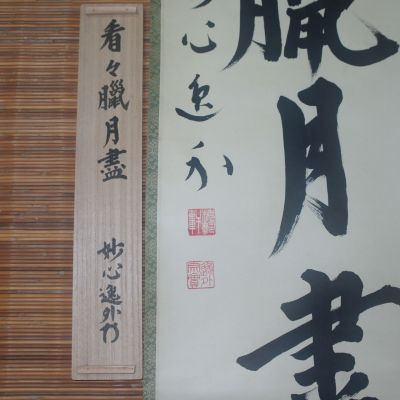 看々臘月盡
妙心逸外
臘月盡
心逸外